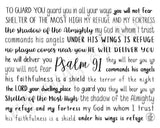 to guard you guard you in all your ways you will not fear
SHELTER OF THE MOST HIGH MY REFUGE AND MY FORTRESS
the shadow of the Almighty my God in whom I trust
commands his angels UNDER HIS WINGS IS REFUGE
no plague comes near you HE WILL DELIVER YOU
he will deliver you Psalm 91 you will not fear
guard you in all your ways commands his angels
his faithfulness is a shield the terror of the night
the LORD your dwelling place to guard you they will bear you up
Shelter of the Most High the shadow of the Almighty
my refuge and my fortress my God in whom I trust
under his wings is refuge his faithfulness is a shield